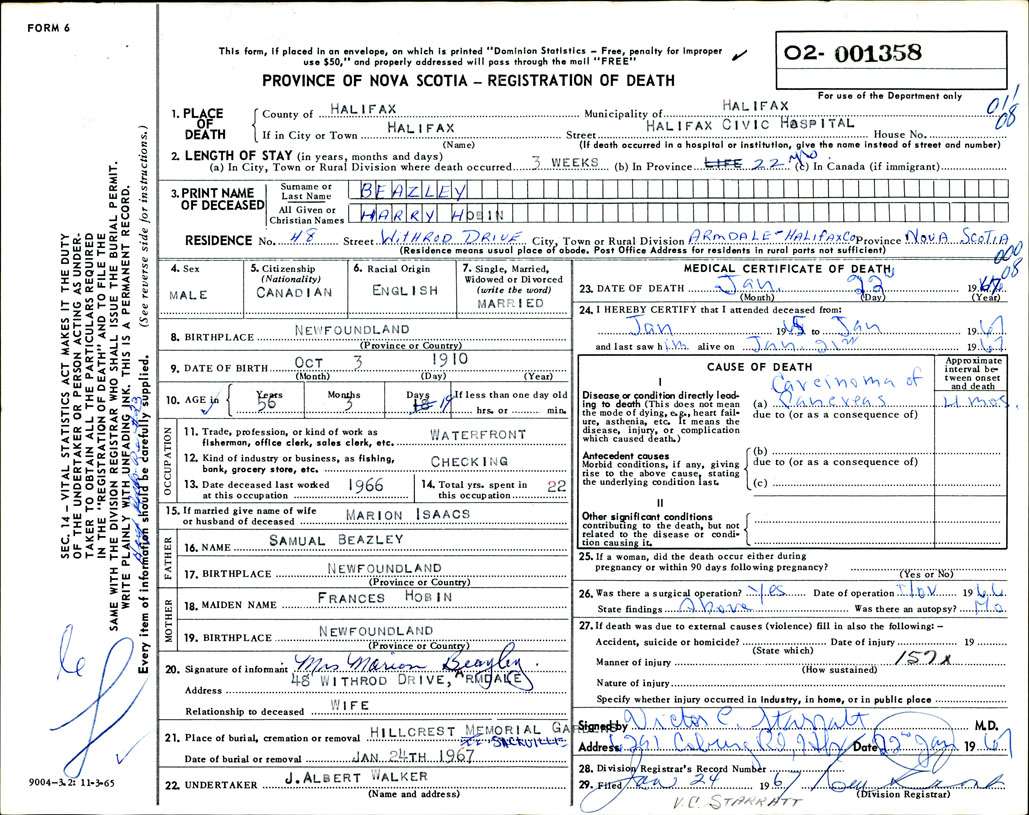 FORM 6
This form, if placed in an envelope, on which is printed "Dominion Statistics – Free, penalty for improper
use $50," and properly addressed will pass through the mail "FREE"
O2- 001358
PROVINCE OF NOVA SCOTIA – REGISTRATION OF DEATH
For use of the Department only
011
08
1. PLACE OF DEATH
County of HALIFAX Municipality of HALIFAX
If in City or Town HALIFAX Street HALIFAX CIVIC HOSPITAL House No.
(Name) (If death occurred in a hospital or institution, give the name instead of street and number)
2. LENGTH OF STAY (in years, months and days)
(a) In City, Town or Rural Division where death occurred 3 WEEKS (b) In Province LIFE 22 yrs. (c) In Canada (if immigrant)
3. PRINT NAME OF DECEASED
Surname or Last Name BEAZLEY
All Given or Christian Names HARRY HOBIN
RESIDENCE No. 48 Street WITHROD DRIVE City, Town or Rural Division ARMDALE-HALIFAX CO Province NOVA SCOTIA
(Residence means usual place of abode. Post Office Address for residents in rural parts not sufficient)
000
08
4. Sex MALE
5. Citizenship (Nationality) CANADIAN
6. Racial Origin ENGLISH
7. Single, Married, Widowed or Divorced (write the word) MARRIED
8. BIRTHPLACE NEWFOUNDLAND
(Province or Country)
9. DATE OF BIRTH OCT 3 1910
(Month) (Day) (Year)
10. AGE in Years 56 Months 3 Days 18 19 If less than one day old
hrs. or min.
OCCUPATION
11. Trade, profession, or kind of work as fisherman, office clerk, sales clerk, etc. WATERFRONT
12. Kind of industry or business, as fishing, bank, grocery store, etc. CHECKING
13. Date deceased last worked at this occupation 1966
14. Total yrs. spent in this occupation 22
15. If married give name of wife or husband of deceased MARION ISAACS
FATHER
16. NAME SAMUAL BEAZLEY
17. BIRTHPLACE NEWFOUNDLAND
(Province or Country)
MOTHER
18. MAIDEN NAME FRANCES HOBIN
19. BIRTHPLACE NEWFOUNDLAND
(Province or Country)
20. Signature of informant Mrs Marion Beazley
Address 48 WITHROD DRIVE, ARMDALE
Relationship to deceased WIFE
21. Place of burial, cremation or removal HILLCREST MEMORIAL GARDENS
SACKVILLE
Date of burial or removal JAN 24TH 1967
22. UNDERTAKER J. ALBERT WALKER
(Name and address)
MEDICAL CERTIFICATE OF DEATH
23. DATE OF DEATH Jan. 22 1967
(Month) (Day) (Year)
24. I HEREBY CERTIFY that I attended deceased from:
Jan 19 to Jan 1967
and last saw him alive on Jan. 21st 1967
CAUSE OF DEATH
Approximate interval between onset and death
I
Disease or condition directly leading to death (This does not mean the mode of dying, e.g., heart failure, asthenia, etc. It means the disease, injury, or complication which caused death.)
(a) Carcinoma of Pancreas 4 mos.
due to (or as a consequence of)
Antecedent causes
Morbid conditions, if any, giving rise to the above cause, stating the underlying condition last.
(b)
due to (or as a consequence of)
(c)
II
Other significant conditions contributing to the death, but not related to the disease or condition causing it.
25. If a woman, did the death occur either during pregnancy or within 90 days following pregnancy?
(Yes or No)
26. Was there a surgical operation? Yes Date of operation Nov 1966
State findings Above Was there an autopsy? No
27. If death was due to external causes (violence) fill in also the following: –
Accident, suicide or homicide? Date of injury 19
(State which)
Manner of injury 157x
(How sustained)
Nature of injury
Specify whether injury occurred in Industry, in home, or in public place
Signed by Victor C. Starratt M.D.
Address 6261 Coburg Rd, Hfx Date 22nd Jan 1967
28. Division Registrar's Record Number
29. Filed Jan 24 1967
(Division Registrar)
V.C. STARRATT
SEC. 14 – VITAL STATISTICS ACT MAKES IT THE DUTY
OF THE UNDERTAKER OR PERSON ACTING AS UNDER-
TAKER TO OBTAIN ALL THE PARTICULARS REQUIRED
IN THE "REGISTRATION OF DEATH" AND TO FILE THE
SAME WITH THE DIVISION REGISTRAR WHO SHALL ISSUE THE BURIAL PERMIT.
WRITE PLAINLY WITH UNFADING INK. THIS IS A PERMANENT RECORD.
Every item of information should be carefully supplied. (See reverse side for instructions.)
9004-3.2: 11-3-65